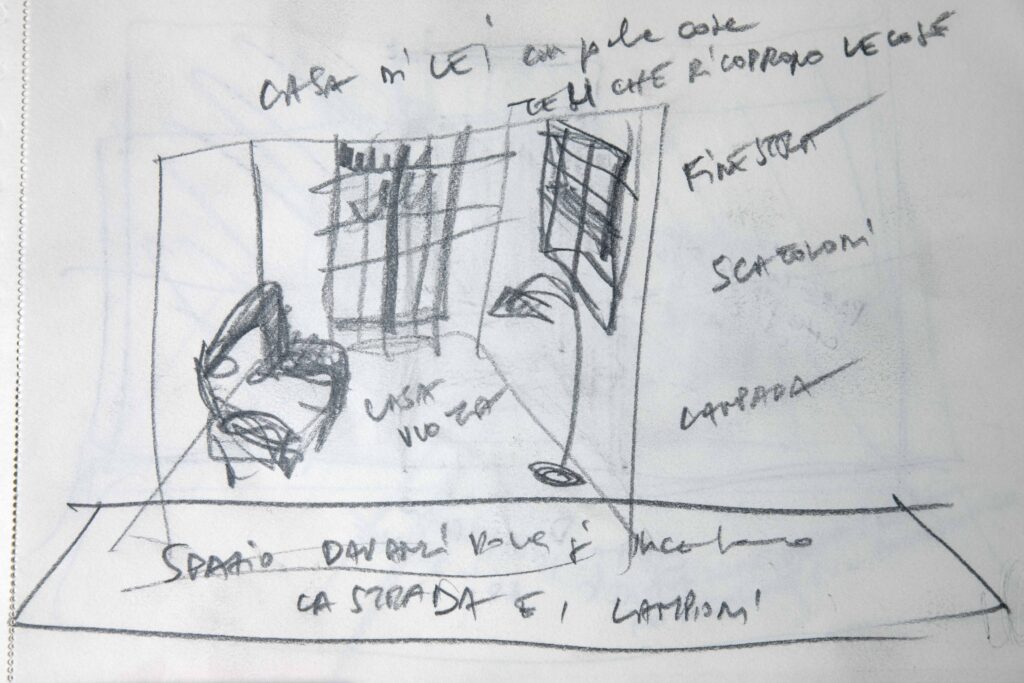 CASA DI LEI con poche cose
TELI CHE RICOPRONO LE COSE
FINESTRA
SCATOLONI
LAMPADA
CASA
VUOTA
SPAZIO DAVANTI dove si incontrano
LA STRADA E I LAMPIONI